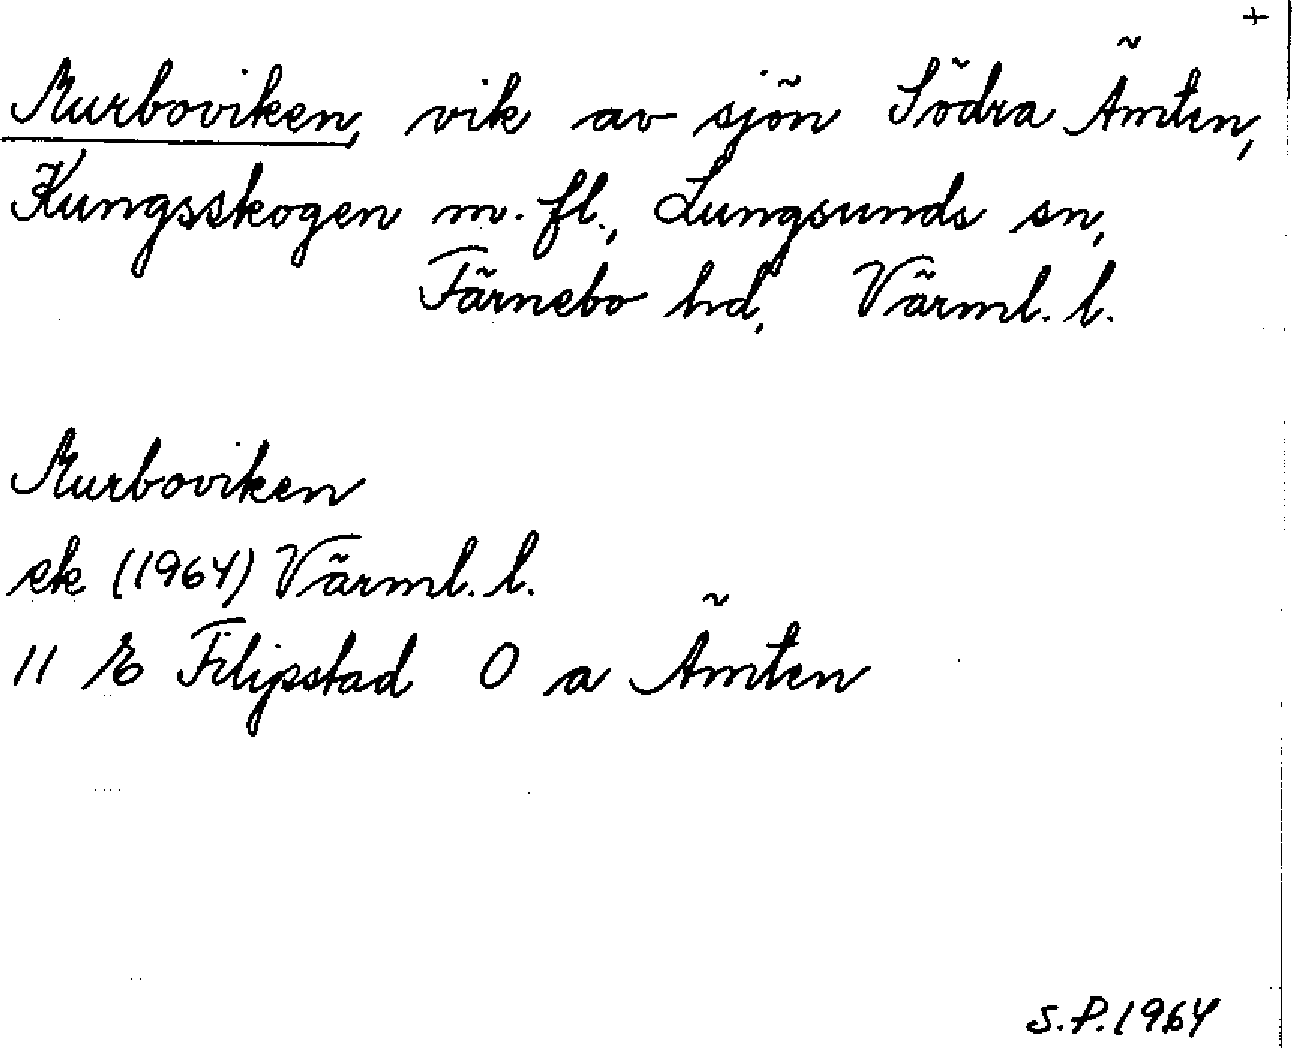 +
Murboviken, vik av sjön Södra Ämten,
Kungsskogen m. fl., Lungsunds sn,
Färnebo hd, Värml. l.
Murboviken
ek (1964) Värml. l.
11 E Filipstad O a Ämten
S.P. 1964